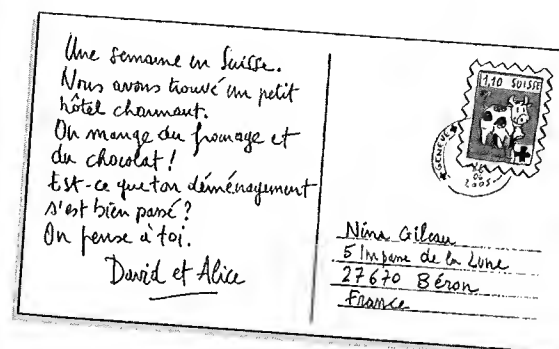 Une semaine en Suisse.
Nous avons trouvé un petit
hôtel charmant.
On mange du fromage et
du chocolat !
Est-ce que ton déménagement
s'est bien passé ?
On pense à toi.
David et Alice
1,10 SUISSE
GENÈVE
06
2005
Nina Gileau
5 Impasse de la Lune
27670 Béron
France